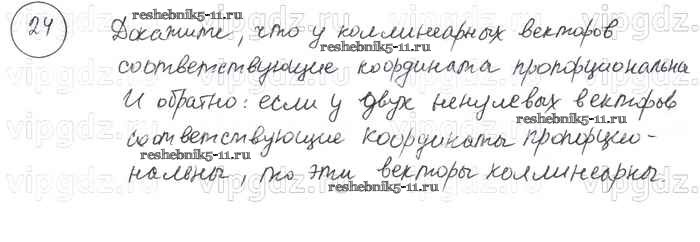 24 Докажите, что у коллинеарных векторов
соответствующие координата пропорциональна
И обратно: если у двух ненулевых векторов
соответствующие координаты пропорцио-
нальны, то эти векторы коллинеарны.
reshebnik5-11.ru
reshebnik5-11.ru
reshebnik5-11.ru
reshebnik5-11.ru
reshebnik5-11.ru
reshebnik5-11.ru
vipgdz.ru